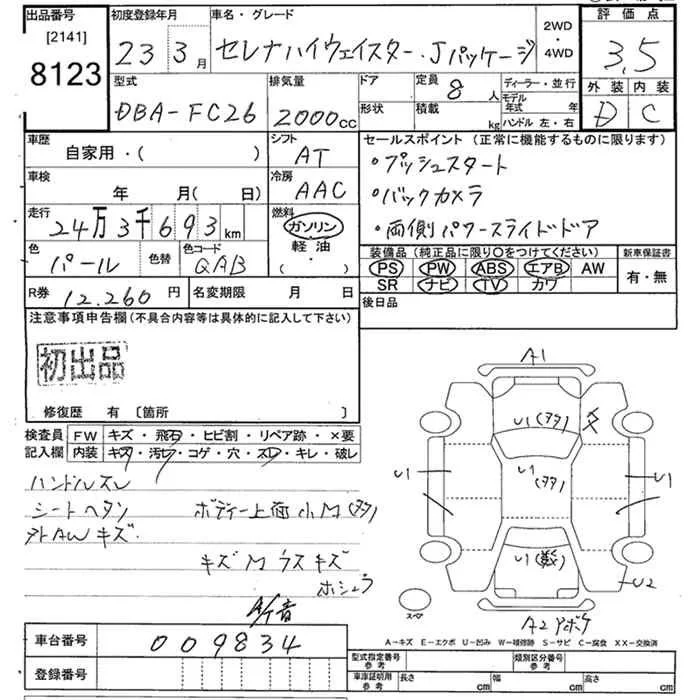 出品番号
[2141]
8123
初度登録年月
23 3月
車名・グレード
セレナハイウェイスター・Jパッケージ
2WD
・
4WD
評価点
3.5
外装 内装
D C
型式
DBA-FC26
排気量
2000cc
ドア
形状
定員
8人
積載
kg
ディーラー・並行
モデル年式 年
ハンドル 左・右
車歴
自家用・( )
シフト
AT
セールスポイント(正常に機能するものに限ります)
・プッシュスタート
・バックカメラ
・両側パワースライドドア
車検
年 月( 日)
冷房
AAC
走行
24万3千693km
燃料
ガソリン
軽油
( ・ )
色
パール
色替
色コード
QAB
装備品(純正品に限り○をつけてください)
PS PW ABS エアB AW
SR ナビ TV カワ
新車保証書
有・無
R券 12,260円
名変期限 月 日
後日品
注意事項申告欄(不具合内容等は具体的に記入して下さい)
初出品
修復歴 有 〔箇所 〕
検査員
記入欄
FW キズ・飛石・ヒビ割・リペア跡・×要
内装 キズ・汚レ・コゲ・穴・スレ・キレ・破レ
ハンドルスレ
シートヘタリ
ボディー上面小M(タタ)
アトAWキズ
キズMウスキズ
ホシュウ
A1
U1(タタ)
U1
(タタ)
U1
U1
U1(数)
U2
スペア
A2
A-キズ E-エクボ U-凹み W-補修跡 S-サビ C-腐食 XX-交換済
車台番号
009834
登録番号
型式指定番号
参考
類別区分番号
参考
車庫証明用
参考
長さ cm
幅 cm
高さ cm